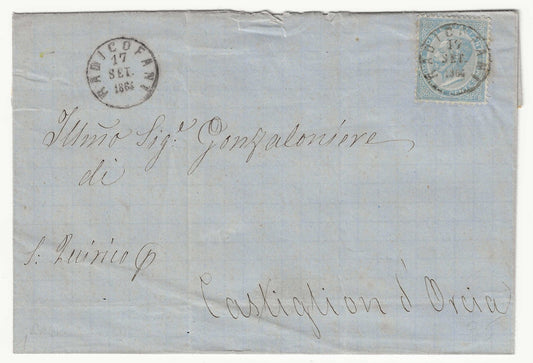 RADICOFANI
17
SET.
1864
RADICOFANI
17
SET.
1864
Illmo Sigr. Gonfaloniere
di
S. Quirico p
Castiglion d'Orcia